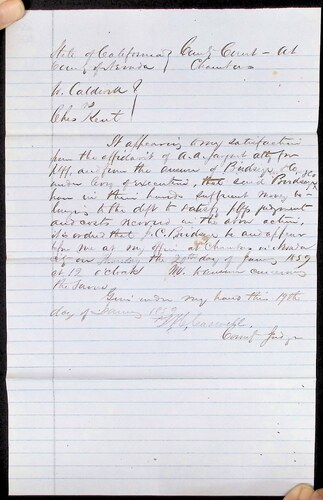 State of California } County Court – At
County of Nevada } Chambers
W. Caldwell }
vs
Chas Kent }
It appearing to my satisfaction
from the affidavit of A. A. Sargent atty for
Plff. and from the answer of Birdseye & Co
under levy of execution, that said Birdseye
have in their hands sufficient money be
longing to the deft to satisfy plffs judgment
and costs accrued in the above action,
it is ordered that J.C. Birdseye be and appear
before me at my office at Chambers in Nevada
on the 20th day of January 1859
at 12 o'clock M. to answer concerning
the same.
Given under my hand this 19th
day of January 1859
County Judge